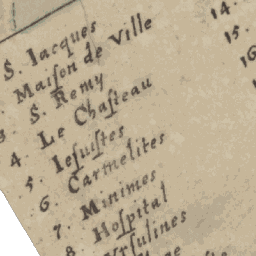 S. Iacques
Maiſon de Ville
S. Remy
4 Le Chaſteau
5 Ieſuiſtes
6. Carmelites
7. Minimes
8 Hoſpital
Urſulines
14.
15.
16